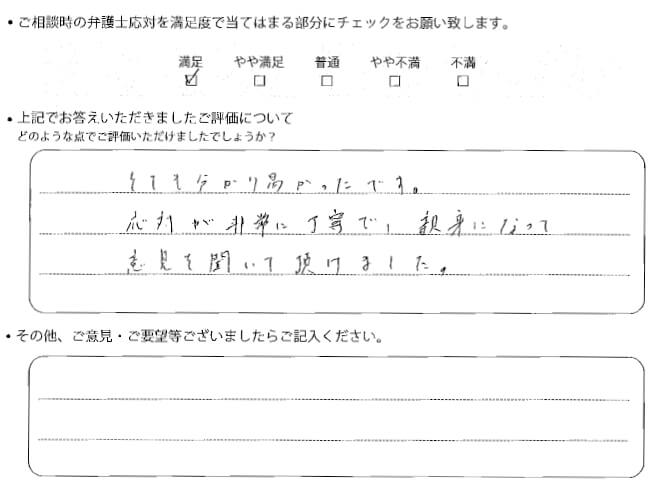 • ご相談時の弁護士応対を満足度で当てはまる部分にチェックをお願い致します。
満足 やや満足 普通 やや不満 不満
☑ □ □ □ □
• 上記でお答えいただきましたご評価について
どのような点でご評価いただけましたでしょうか?
とても分かり易かったです。
応対が非常に丁寧で、親身になって
意見を聞いて頂けました。
• その他、ご意見・ご要望等ございましたらご記入ください。